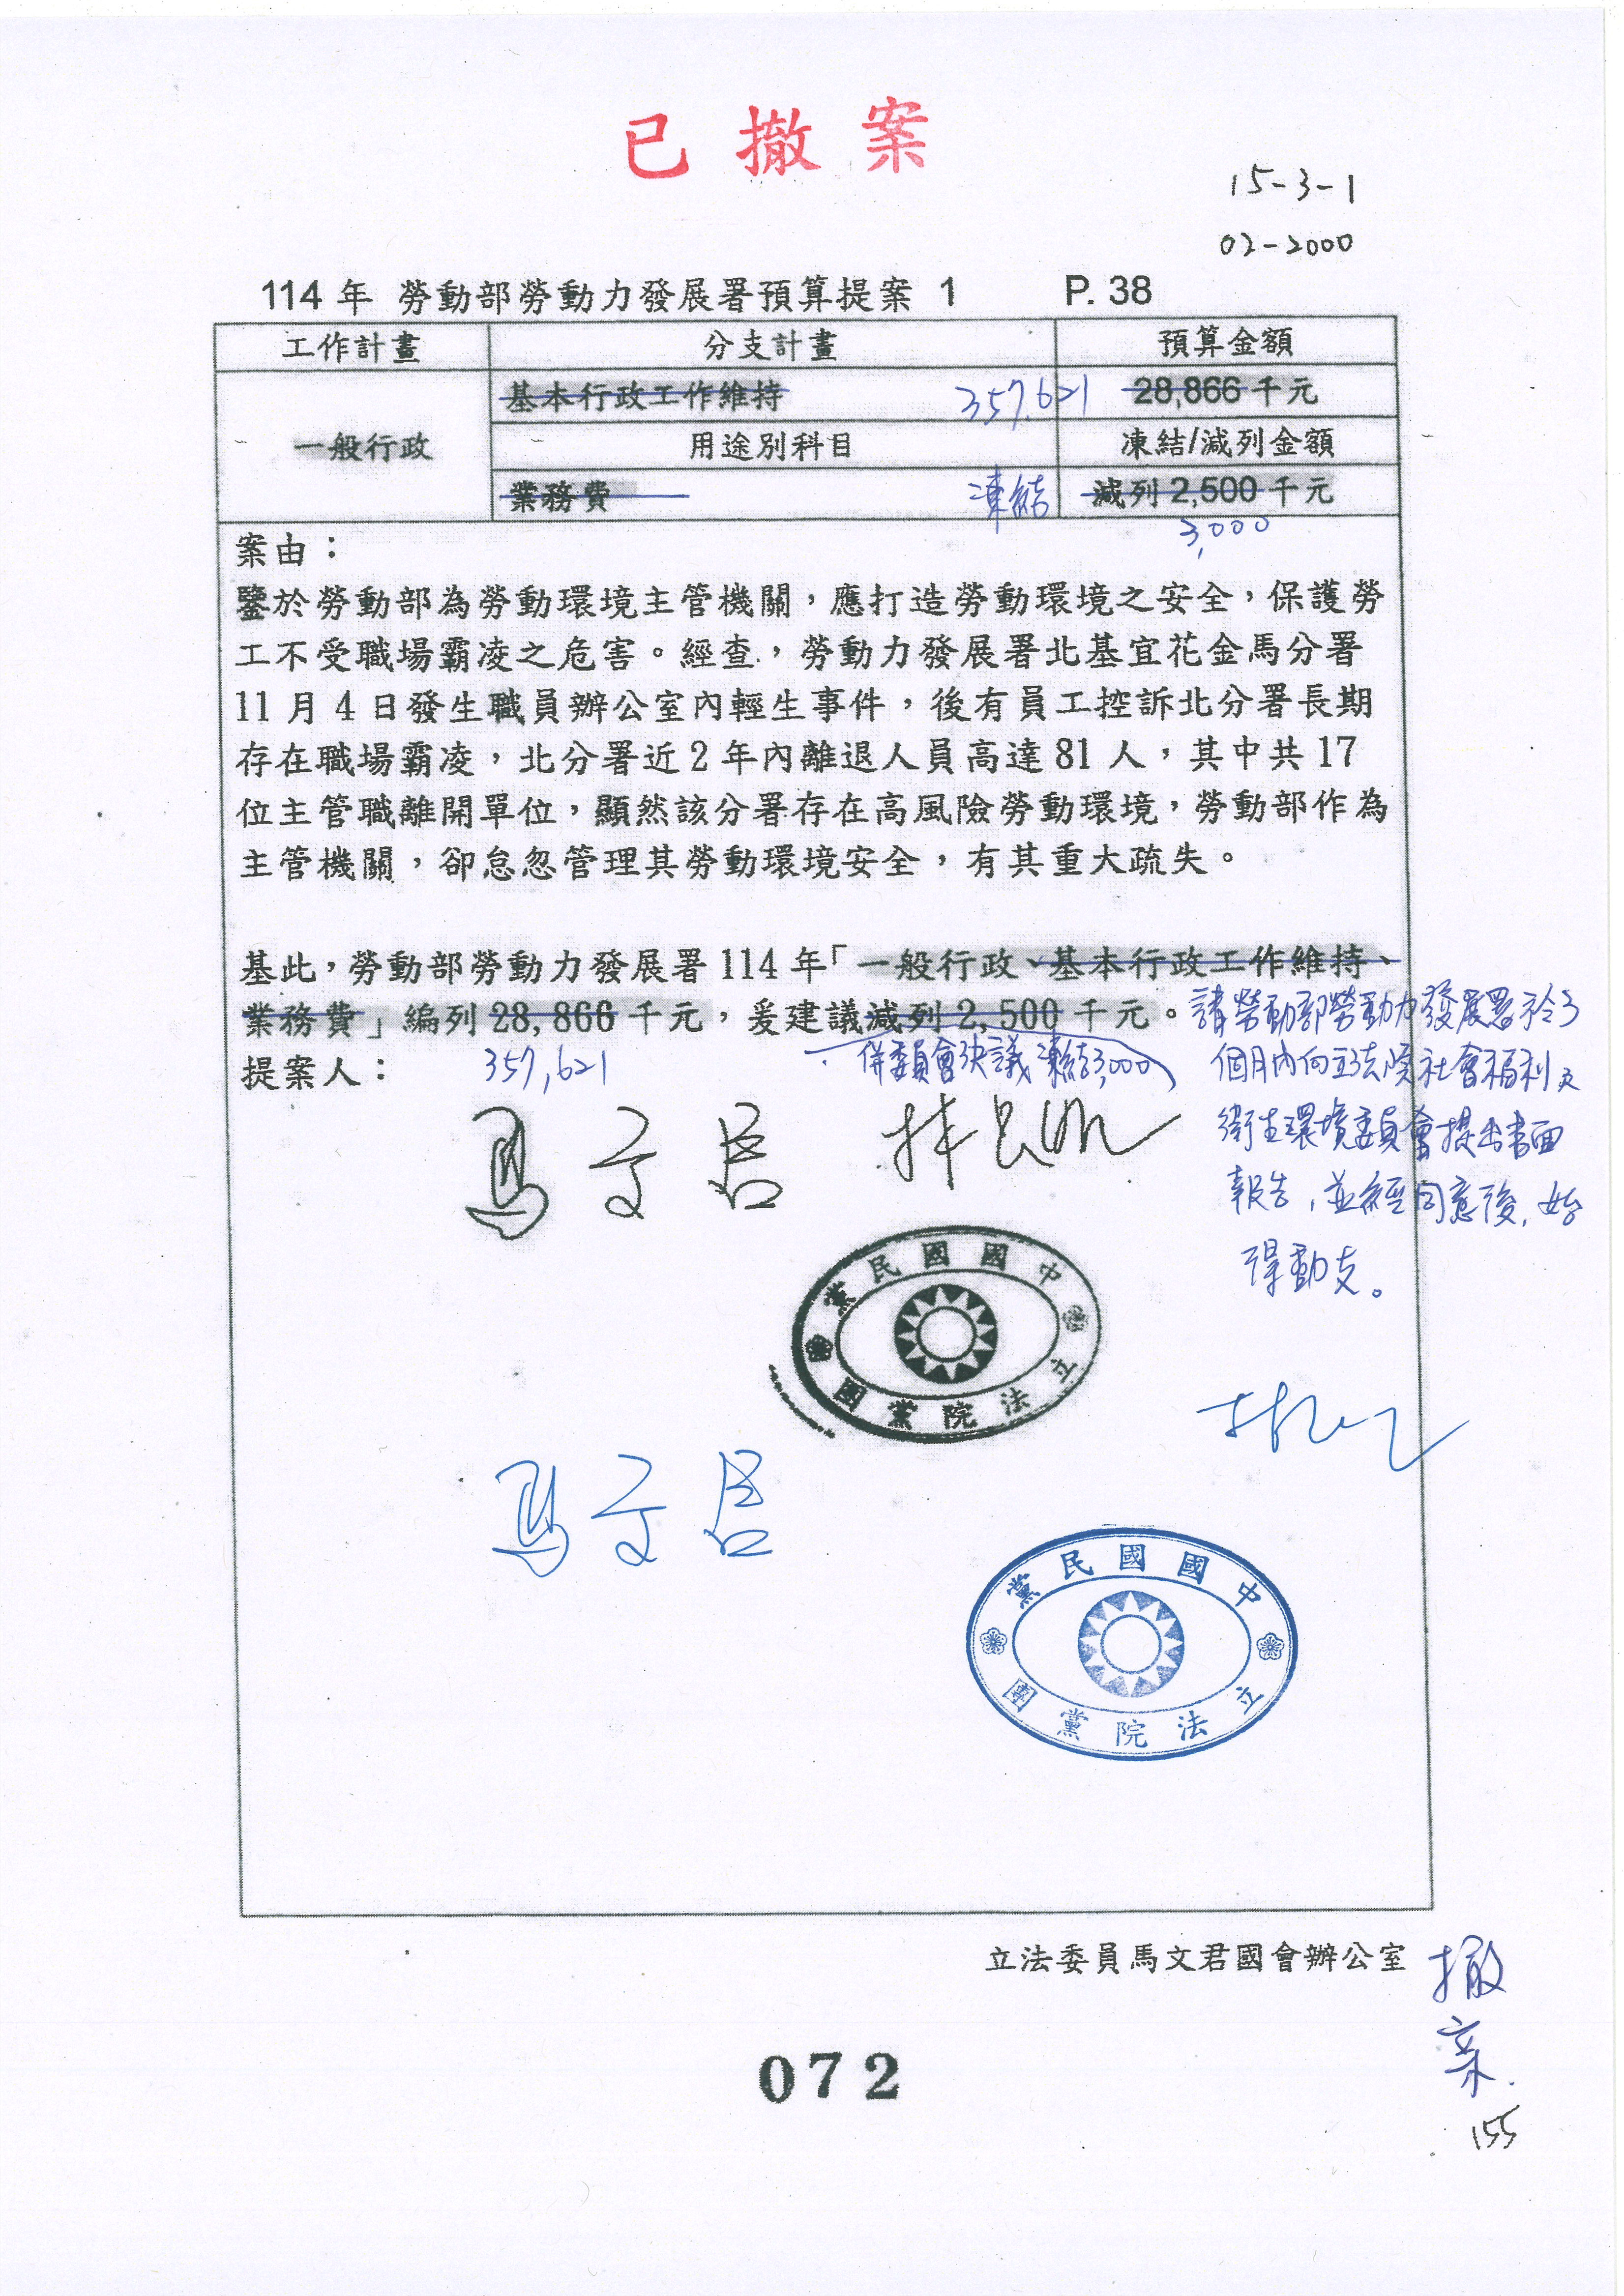 已撤案
15-3-1
02-2000
114年 勞動部勞動力發展署預算提案 1 P. 38
工作計畫 分支計畫 預算金額
基本行政工作維持 357,621 28,866 千元
一般行政 用途別科目 凍結/減列金額
業務費 凍結 減列 2,500 千元
3,000
案由：
鑒於勞動部為勞動環境主管機關，應打造勞動環境之安全，保護勞
工不受職場霸凌之危害。經查，勞動力發展署北基宜花金馬分署
11 月 4 日發生職員辦公室內輕生事件，後有員工控訴北分署長期
存在職場霸凌，北分署近 2 年內離退人員高達 81 人，其中共 17
位主管職離開單位，顯然該分署存在高風險勞動環境，勞動部作為
主管機關，卻怠忽管理其勞動環境安全，有其重大疏失。
基此，勞動部勞動力發展署 114 年「一般行政、基本行政工作維持、
業務費」編列 28,866 千元，爰建議減列 2,500 千元。
357,621
併委員會決議凍結3,000
請勞動部勞動力發展署於3
個月內向立法院社會福利及
衛生環境委員會提出書面
報告，並經同意後，始
得動支。
提案人：
馬文君
中國國民黨
立法院黨團
馬文君
中國國民黨
立法院黨團
立法委員馬文君國會辦公室
撤案
155
072